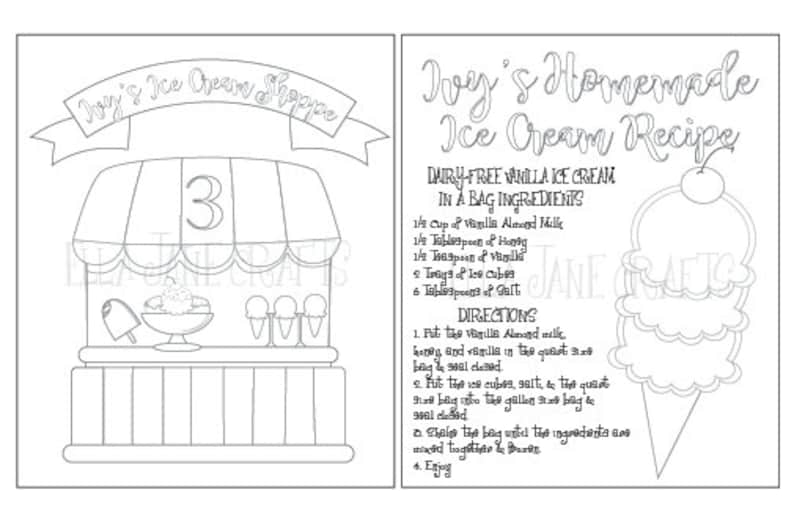 Ivy's Ice Cream Shoppe
3
ELLA JANE CRAFTS
Ivy's Homemade
Ice Cream Recipe
DAIRY-FREE VANILLA ICE CREAM
IN A BAG INGREDIENTS
1/2 Cup of Vanilla Almond Milk
1/2 Tablespoon of Honey
1/2 Teaspoon of Vanilla
2 Trays of Ice Cubes
6 Tablespoons of Salt
JANE CRAFTS
DIRECTIONS
1. Put the vanilla Almond milk,
honey, and vanilla in the quart size
bag & seal closed.
2. Put the ice cubes, salt, & the quart
size bag into the gallon size bag &
seal closed.
3. Shake the bag until the ingredients are
mixed together & frozen.
4. Enjoy